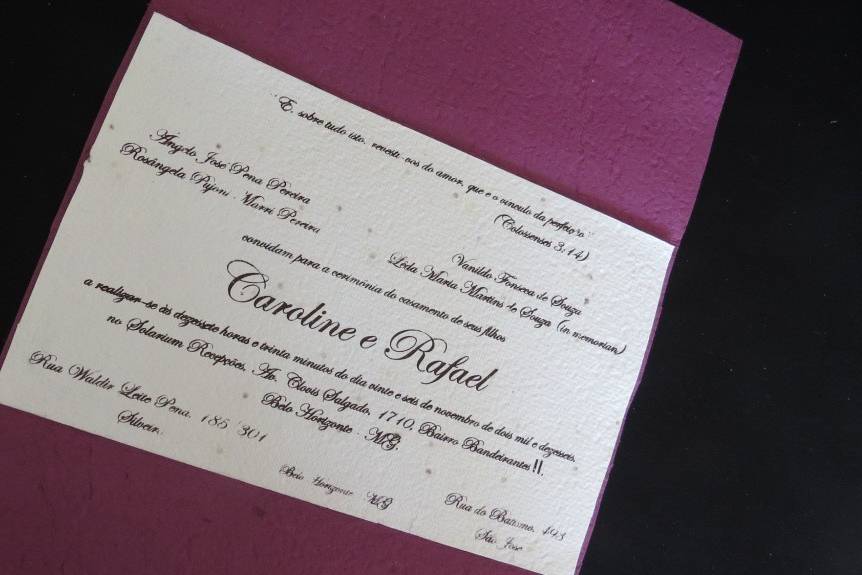 "E, sobre tudo isto, revesti-vos do amor, que é o vínculo da perfeição."
(Colossenses 3:14)
Ângelo José Pena Pereira
Rosângela Pujoni Marri Pereira
Vanildo Fonseca de Souza
Lêda Maria Martins de Souza (in memorian)
convidam para a cerimônia do casamento de seus filhos
Caroline e Rafael
a realizar-se às dezessete horas e trinta minutos do dia vinte e seis de novembro de dois mil e dezesseis,
no Solarium Recepções, Av. Clovis Salgado, 1710, Bairro Bandeirantes II,
Belo Horizonte - MG.
Rua Waldir Leite Pena, 185 301
Silveira
Belo Horizonte MG
Rua do
São José